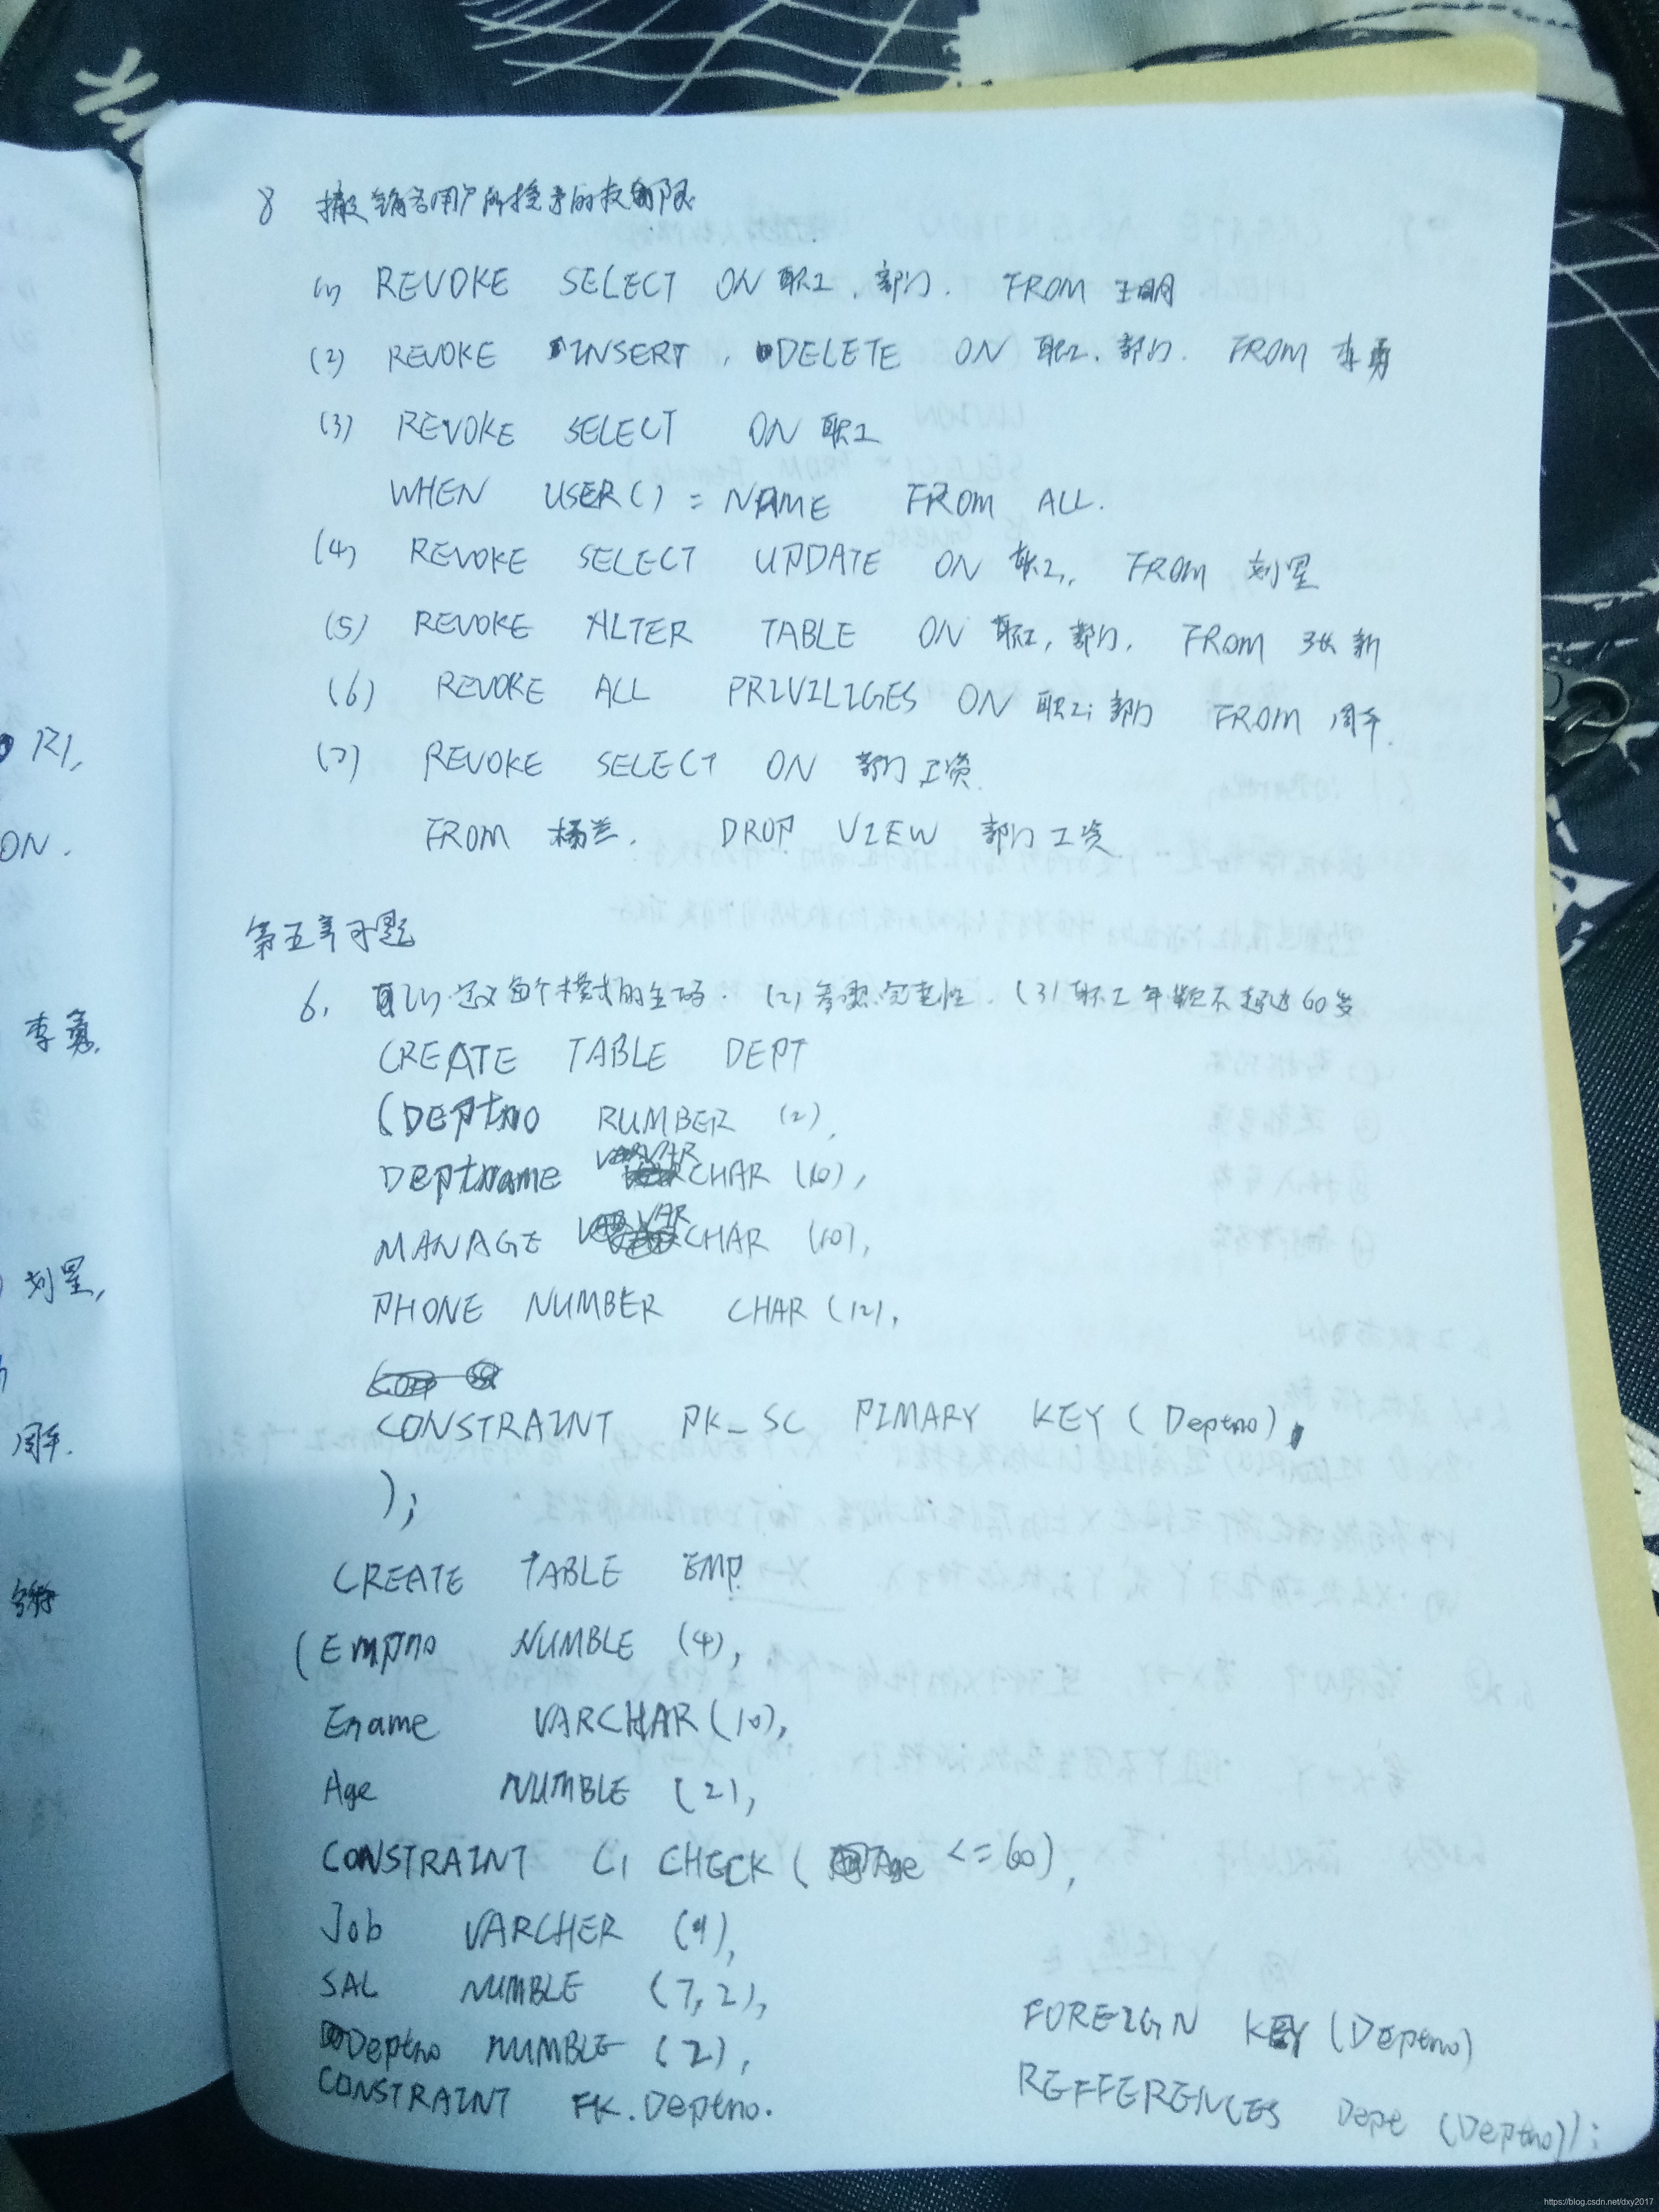 8 撤销各用户所授予的权限
(1) REVOKE SELECT ON 职工, 部门. FROM 王明
(2) REVOKE INSERT, DELETE ON 职工, 部门. FROM 李勇
(3) REVOKE SELECT ON 职工
WHEN USER() = NAME FROM ALL.
(4) REVOKE SELECT UPDATE ON 职工, FROM 刘星
(5) REVOKE ALTER TABLE ON 职工, 部门, FROM 张新
(6) REVOKE ALL PRIVILIGES ON 职工; 部门 FROM 周平.
(7) REVOKE SELECT ON 部门工资.
FROM 杨兰. DROP VIEW 部门工资
第五章习题
6. (1) 定义每个模式的主码. (2) 参照完整性. (3) 职工年龄不超过60岁
CREATE TABLE DEPT
(DEPtno RUMBER (2),
DEPtname VARCHAR (10),
MANAGE VARCHAR (10),
PHONE NUMBER CHAR (12),
CONSTRAINT PK_SC PIMARY KEY (Deptno),
);
CREATE TABLE EMP
(Empno NUMBLE (4),
Ename VARCHAR (10),
Age NUMBLE (2),
CONSTRAINT C1 CHECK (Age <= 60),
Job VARCHER (9),
SAL NUMBLE (7,2),
Deptno NUMBLE (2),
CONSTRAINT FK.Deptno.
FOREIGN KEY (Deptno)
REFFERENCES Dept (Deptno));
R1,
ON.
李勇.
刘星,
周平.
https://blog.csdn.net/dxy2017